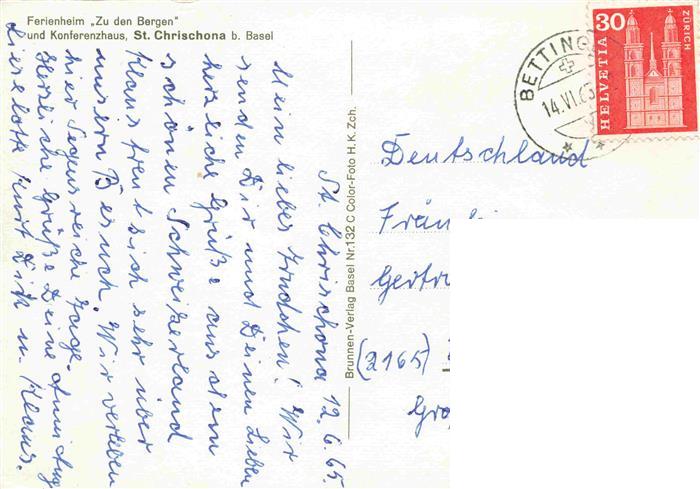 Ferienheim „Zu den Bergen"
und Konferenzhaus, St. Chrischona b. Basel
St. Chrischona 12.6.65.
Mein liebes Trudchen! Wir
senden Dir und Deinen Lieben
herzliche Grüße aus dem
schönen Schweizerland
Klaus freut sich sehr über
unsern Besuch. Wir verleben
hier segensreiche Tage.
Herzliche Grüße Deine
Lieselotte Kurt Dith u. Klaus.
Brunnen-Verlag Basel Nr.132 C Color-Foto H.K.Zch.
BETTING
14.VI.65
30
HELVETIA
ZÜRICH
Deutschland
Fräul
Gertru
(2165)
Gro